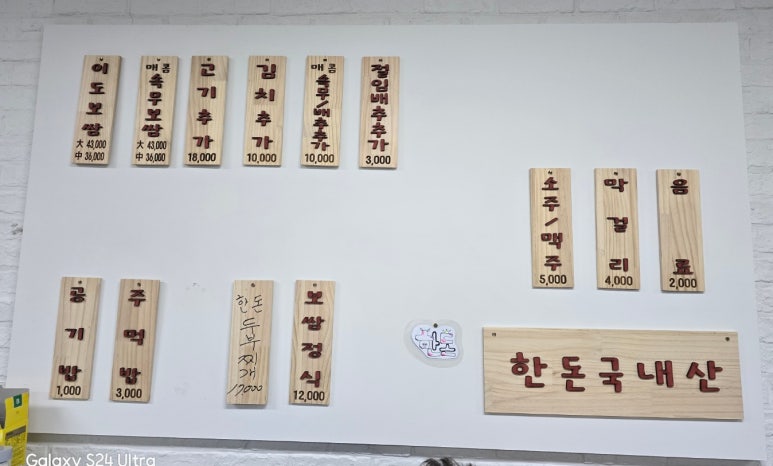 이도보쌈
大 43,000
中 36,000
매콤
속무보쌈
大 43,000
中 36,000
고기추가
18,000
김치추가
10,000
매콤
속무/배추추가
10,000
절임배추추가
3,000
소주/맥주
5,000
막걸리
4,000
음료
2,000
공기밥
1,000
주먹밥
3,000
한돈
두부찌개
12,000
보쌈정식
12,000
한돈국내산
Galaxy S24 Ultra